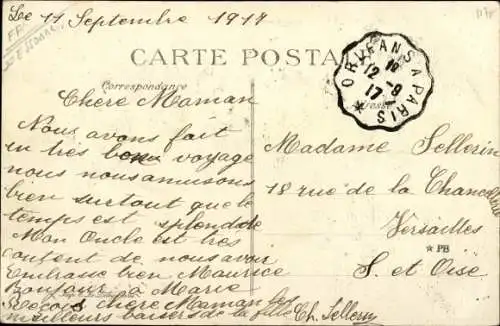 Le 11 Septembre 1917
CARTE POSTA
Correspondance
ORLEANS A PARIS
12 - 9
17
Chere Maman
Nous avons fait
un très bon voyage
nous nous amusons
bien surtout que le
temps est splendide
Mon Oncle est très
content de nous avoir
Embrasse bien Maurice
Bonjour à Marie
Reçois chère Maman les
meilleurs baisers de ta fille
Ch. Sellerin
Madame Sellerin
18 rue de la Chancellerie
Versailles
* PB
S. et Oise